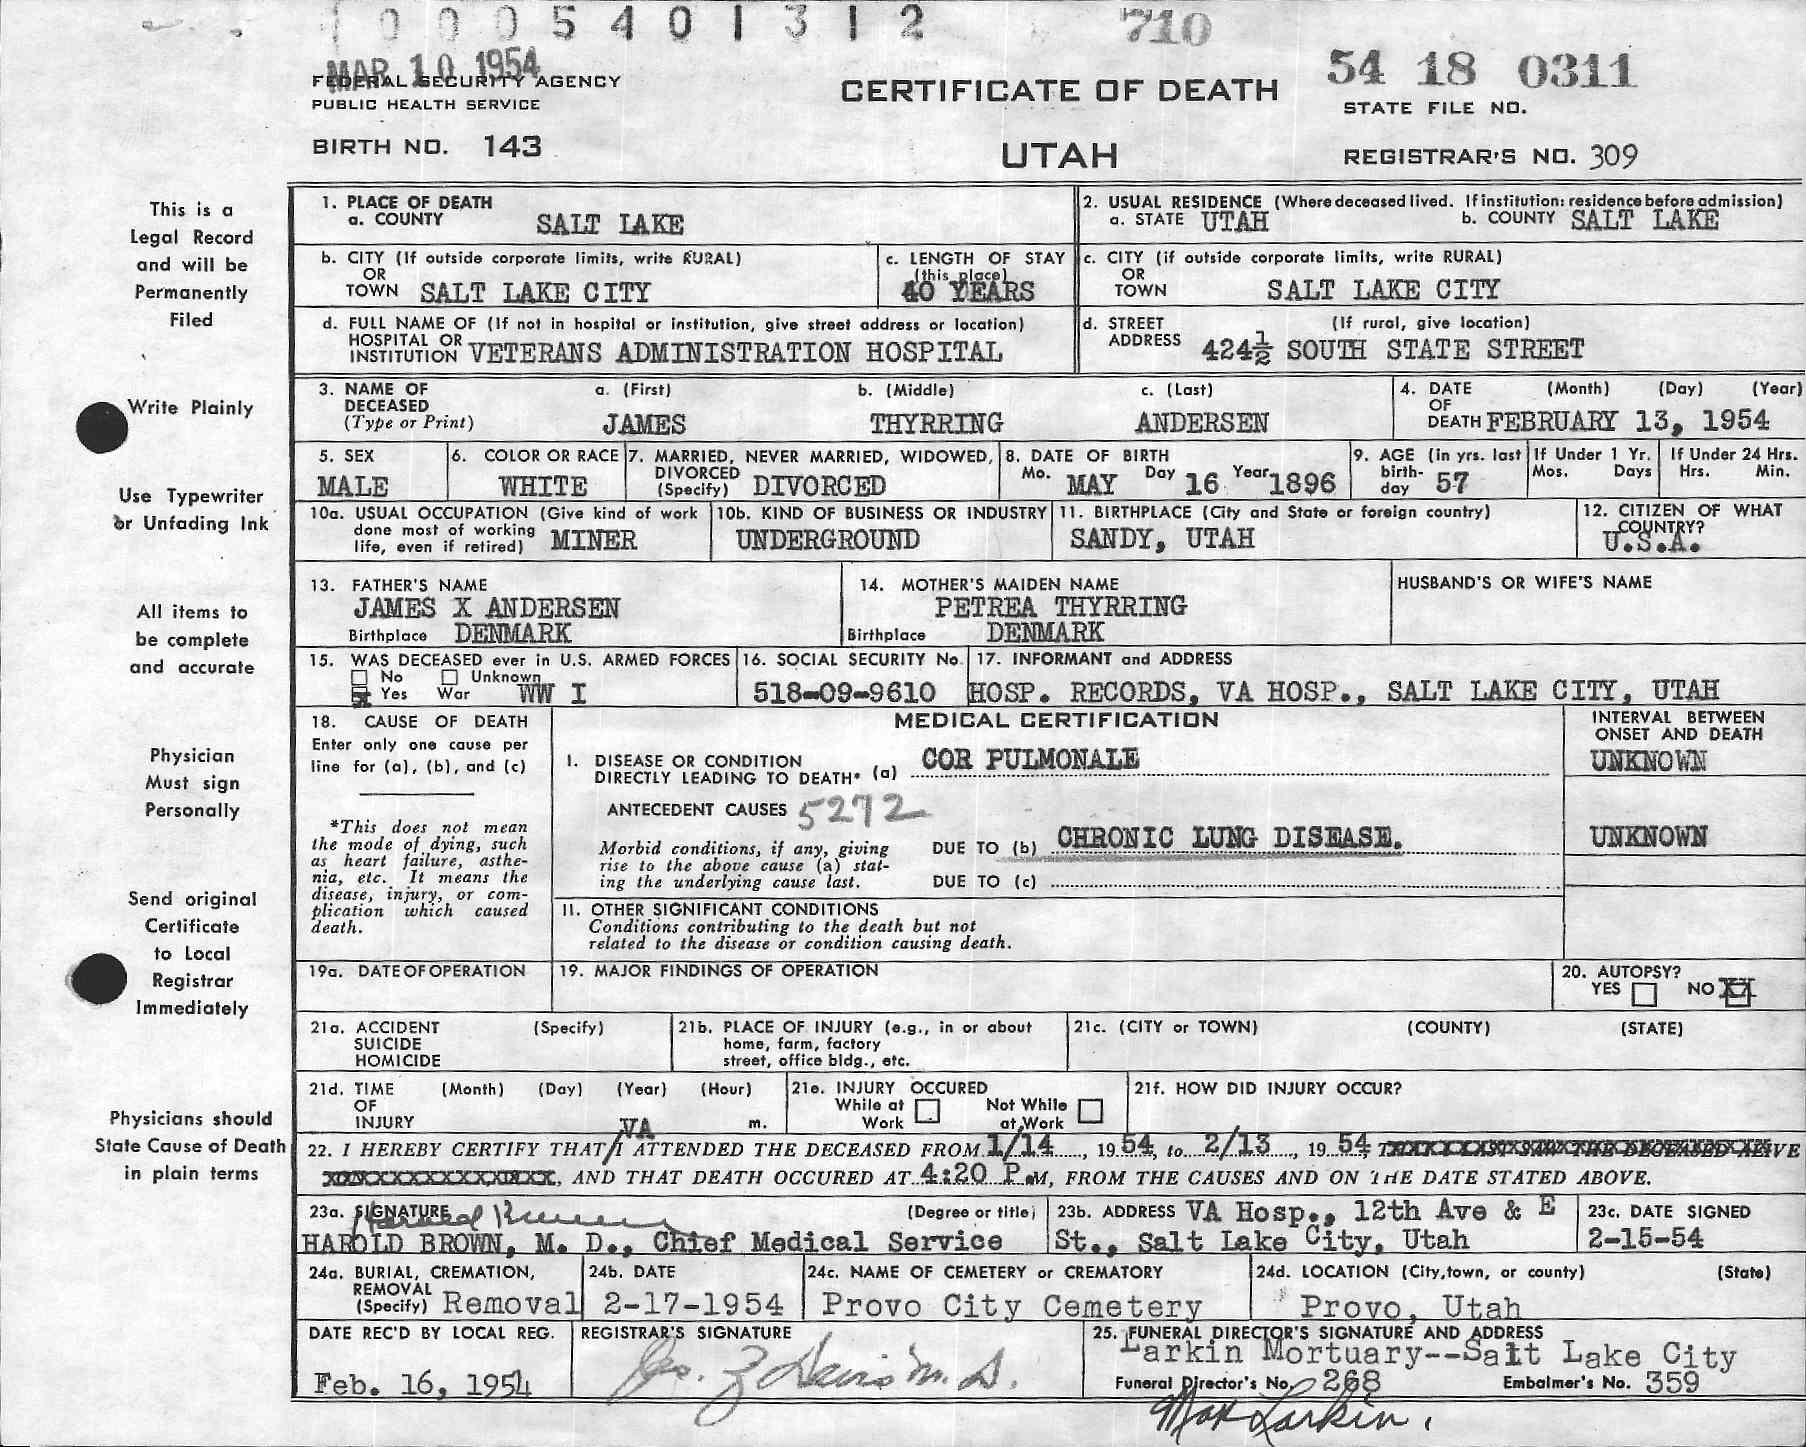 0 0 0 5 4 0 1 3 1 2
710
MAR 10 1954
54 18 0311
FEDERAL SECURITY AGENCY
PUBLIC HEALTH SERVICE
CERTIFICATE OF DEATH
STATE FILE NO.
BIRTH NO. 143
UTAH
REGISTRAR'S NO. 309
This is a
Legal Record
and will be
Permanently
Filed
Write Plainly
Use Typewriter
or Unfading Ink
All items to
be complete
and accurate
Physician
Must sign
Personally
Send original
Certificate
to Local
Registrar
Immediately
Physicians should
State Cause of Death
in plain terms
1. PLACE OF DEATH
a. COUNTY SALT LAKE
2. USUAL RESIDENCE (Where deceased lived. If institution: residence before admission)
a. STATE UTAH b. COUNTY SALT LAKE
b. CITY (If outside corporate limits, write RURAL)
OR
TOWN SALT LAKE CITY
c. LENGTH OF STAY
(this place)
40 YEARS
c. CITY (if outside corporate limits, write RURAL)
OR
TOWN SALT LAKE CITY
d. FULL NAME OF (If not in hospital or institution, give street address or location)
HOSPITAL OR
INSTITUTION VETERANS ADMINISTRATION HOSPITAL
d. STREET (If rural, give location)
ADDRESS 424½ SOUTH STATE STREET
3. NAME OF a. (First) b. (Middle) c. (Last)
DECEASED
(Type or Print) JAMES THYRRING ANDERSEN
4. DATE (Month) (Day) (Year)
OF
DEATH FEBRUARY 13, 1954
5. SEX
MALE
6. COLOR OR RACE
WHITE
7. MARRIED, NEVER MARRIED, WIDOWED,
DIVORCED
(Specify) DIVORCED
8. DATE OF BIRTH
Mo. MAY Day 16 Year 1896
9. AGE (in yrs. last
birth-
day 57
If Under 1 Yr.
Mos. Days
If Under 24 Hrs.
Hrs. Min.
10a. USUAL OCCUPATION (Give kind of work
done most of working
life, even if retired) MINER
10b. KIND OF BUSINESS OR INDUSTRY
UNDERGROUND
11. BIRTHPLACE (City and State or foreign country)
SANDY, UTAH
12. CITIZEN OF WHAT
COUNTRY?
U.S.A.
13. FATHER'S NAME
JAMES X ANDERSEN
Birthplace DENMARK
14. MOTHER'S MAIDEN NAME
PETREA THYRRING
Birthplace DENMARK
HUSBAND'S OR WIFE'S NAME
15. WAS DECEASED ever in U.S. ARMED FORCES
No Unknown
Yes War WW I
16. SOCIAL SECURITY No.
518-09-9610
17. INFORMANT and ADDRESS
HOSP. RECORDS, VA HOSP., SALT LAKE CITY, UTAH
18. CAUSE OF DEATH
Enter only one cause per
line for (a), (b), and (c)
*This does not mean
the mode of dying, such
as heart failure, asthe-
nia, etc. It means the
disease, injury, or com-
plication which caused
death.
MEDICAL CERTIFICATION
INTERVAL BETWEEN
ONSET AND DEATH
I. DISEASE OR CONDITION
DIRECTLY LEADING TO DEATH* (a) COR PULMONALE
UNKNOWN
ANTECEDENT CAUSES 5272
Morbid conditions, if any, giving
rise to the above cause (a) stat-
ing the underlying cause last.
DUE TO (b) CHRONIC LUNG DISEASE.
UNKNOWN
DUE TO (c)
II. OTHER SIGNIFICANT CONDITIONS
Conditions contributing to the death but not
related to the disease or condition causing death.
19a. DATE OF OPERATION
19. MAJOR FINDINGS OF OPERATION
20. AUTOPSY?
YES NO XX
21a. ACCIDENT (Specify)
SUICIDE
HOMICIDE
21b. PLACE OF INJURY (e.g., in or about
home, farm, factory
street, office bldg., etc.
21c. (CITY or TOWN) (COUNTY) (STATE)
21d. TIME (Month) (Day) (Year) (Hour)
OF
INJURY m.
21e. INJURY OCCURED
While at Not While
Work at Work
21f. HOW DID INJURY OCCUR?
VA
22. I HEREBY CERTIFY THAT/I ATTENDED THE DECEASED FROM 1/14, 1954, to 2/13, 1954
AND THAT DEATH OCCURED AT 4:20 P.M, FROM THE CAUSES AND ON THE DATE STATED ABOVE.
23a. SIGNATURE (Degree or title)
HAROLD BROWN, M. D., Chief Medical Service
23b. ADDRESS VA Hosp., 12th Ave & E
St., Salt Lake City, Utah
23c. DATE SIGNED
2-15-54
24a. BURIAL, CREMATION,
REMOVAL
(Specify) Removal
24b. DATE
2-17-1954
24c. NAME OF CEMETERY or CREMATORY
Provo City Cemetery
24d. LOCATION (City, town, or county) (State)
Provo, Utah
DATE REC'D BY LOCAL REG.
Feb. 16, 1954
REGISTRAR'S SIGNATURE
25. FUNERAL DIRECTOR'S SIGNATURE AND ADDRESS
Larkin Mortuary--Salt Lake City
Funeral Director's No. 268 Embalmer's No. 359
Max Larkin.